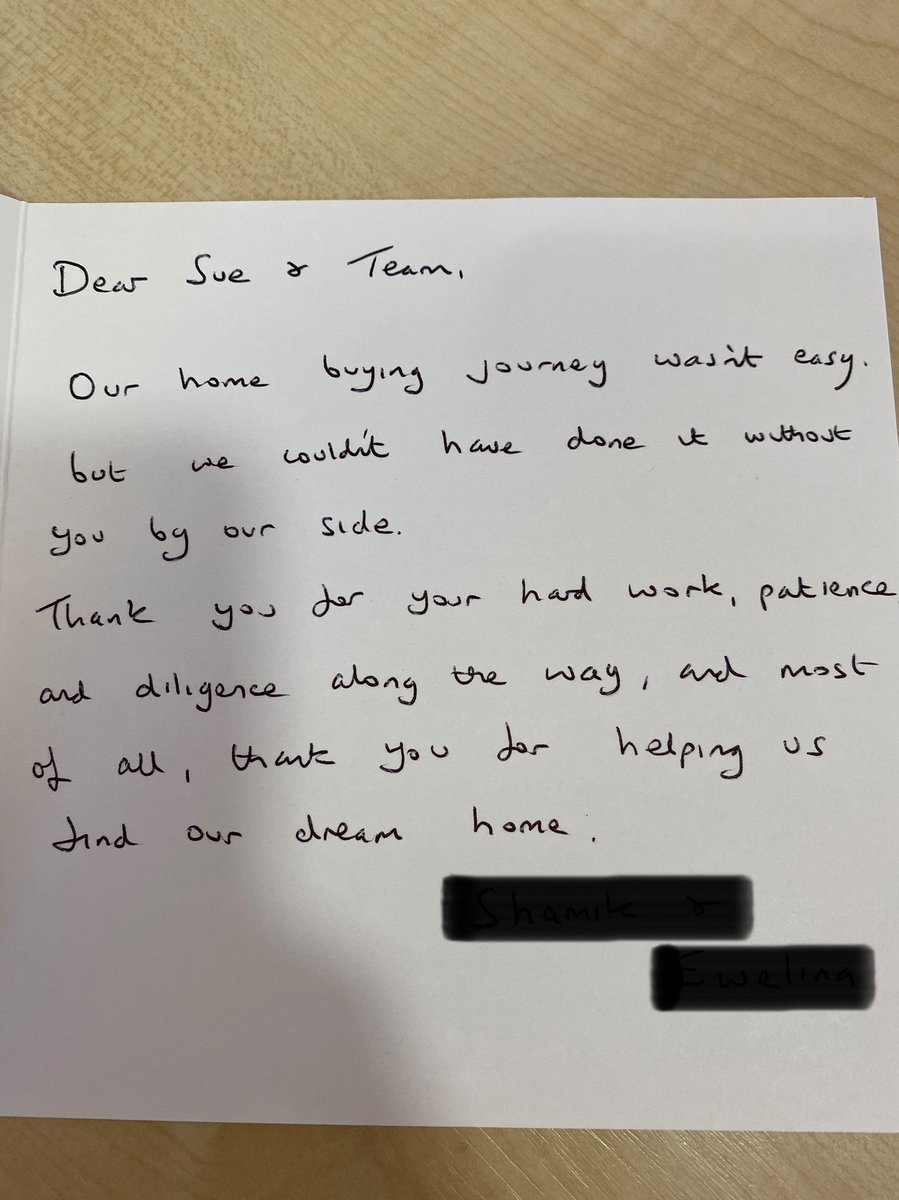 Dear Sue & Team,
Our home buying journey wasn't easy.
but we couldn't have done it without
you by our side.
Thank you for your hard work, patience
and diligence along the way, and most
of all, thank you for helping us
find our dream home.